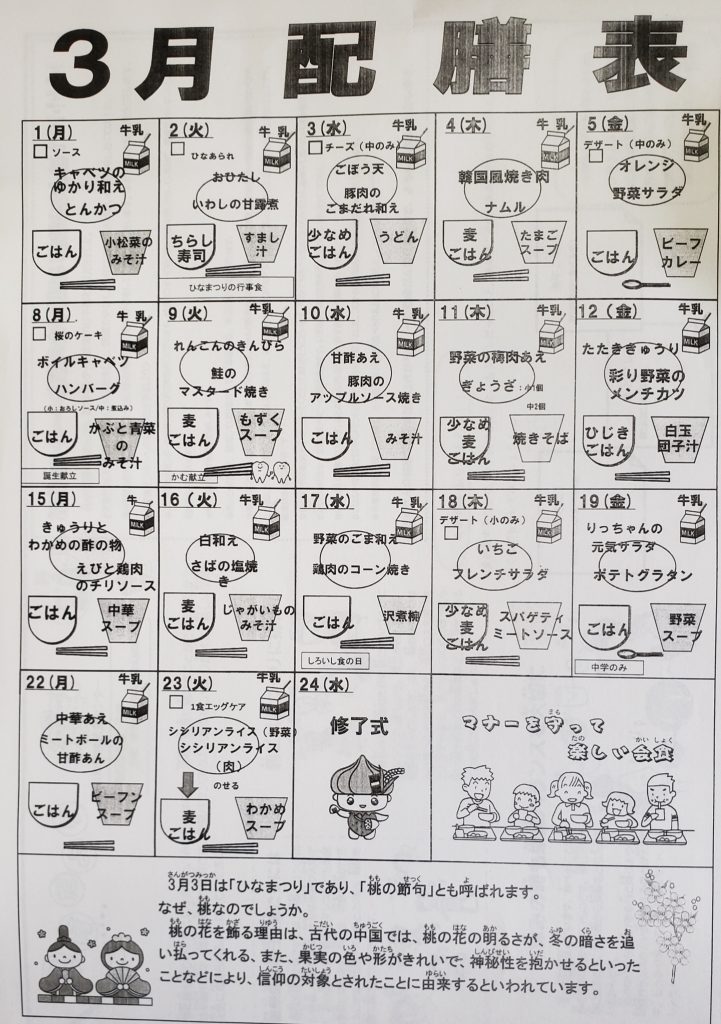 3月 配膳表
1(月) 牛乳
ソース
MILK
キャベツの
ゆかり和え
とんかつ
ごはん
小松菜の
みそ汁
2(火) 牛乳
ひなあられ
MILK
おひたし
いわしの甘露煮
ちらし
寿司
すまし
汁
ひなまつりの行事食
3(水) 牛乳
チーズ(中のみ)
MILK
ごぼう天
豚肉の
ごまだれ和え
少なめ
ごはん
うどん
4(木) 牛乳
MILK
韓国風焼き肉
ナムル
麦
ごはん
たまご
スープ
5(金) 牛乳
デザート(中のみ)
MILK
オレンジ
野菜サラダ
ごはん
ビーフ
カレー
8(月) 牛乳
桜のケーキ
MILK
ボイルキャベツ
ハンバーグ
(小:おろしソース/中:煮込み)
ごはん
かぶと青菜
の
みそ汁
誕生献立
9(火) 牛乳
MILK
れんこんのきんぴら
鮭の
マスタード焼き
麦
ごはん
もずく
スープ
かむ献立
10(水) 牛乳
MILK
甘酢あえ
豚肉の
アップルソース焼き
ごはん
みそ汁
11(木) 牛乳
MILK
野菜の鶏肉あえ
ぎょうざ:小1個
中2個
少なめ
麦
ごはん
焼きそば
12(金) 牛乳
MILK
たたきぎゅうり
彩り野菜の
メンチカツ
ひじき
ごはん
白玉
団子汁
15(月) 牛
MILK
きゅうりと
わかめの酢の物
えびと鶏肉
のチリソース
ごはん
中華
スープ
16(火) 牛乳
MILK
白和え
さばの塩焼
き
麦
ごはん
じゃがいもの
みそ汁
17(水) 牛乳
MILK
野菜のごま和え
鶏肉のコーン焼き
ごはん
沢煮椀
しろいし食の日
18(木) 牛乳
デザート(小のみ)
MILK
いちご
フレンチサラダ
少なめ
麦
ごはん
スパゲティ
ミートソース
19(金) 牛乳
MILK
りっちゃんの
元気サラダ
ポテトグラタン
ごはん
野菜
スープ
中学のみ
22(月) 牛乳
MILK
中華あえ
ミートボールの
甘酢あん
ごはん
ビーフン
スープ
23(火) 牛乳
1食エッグケア
MILK
シシリアンライス(野菜)
シシリアンライス
(肉)
のせる
麦
ごはん
わかめ
スープ
24(水)
修了式
マナーを守って
楽しい会食
3月3日は「ひなまつり」であり、「桃の節句」とも呼ばれます。
なぜ、桃なのでしょうか。
桃の花を飾る理由は、古代の中国では、桃の花の明るさが、冬の暗さを追
い払ってくれる、また、果実の色や形がきれいで、神秘性を抱かせるといった
ことなどにより、信仰の対象とされたことに由来するといわれています。